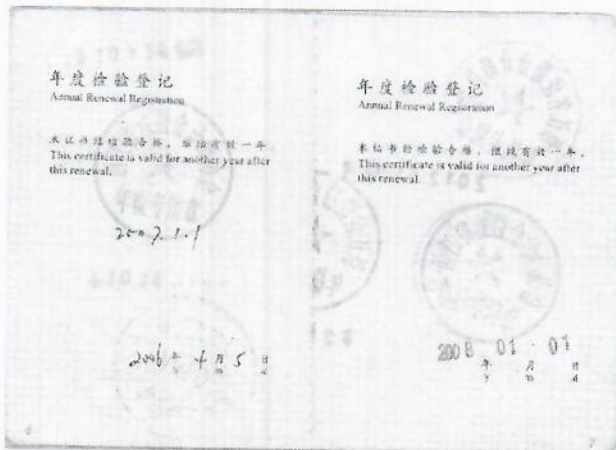 年度检验登记
Annual Renewal Registration
本证书经检验合格，继续有效一年。
This certificate is valid for another year after
this renewal.
2007.1.1
2006年4月5日
y m d
6
年度检验登记
Annual Renewal Registration
本证书经检验合格，继续有效一年。
This certificate is valid for another year after
this renewal.
2008 01 . 01
年 月 日
y m d
7